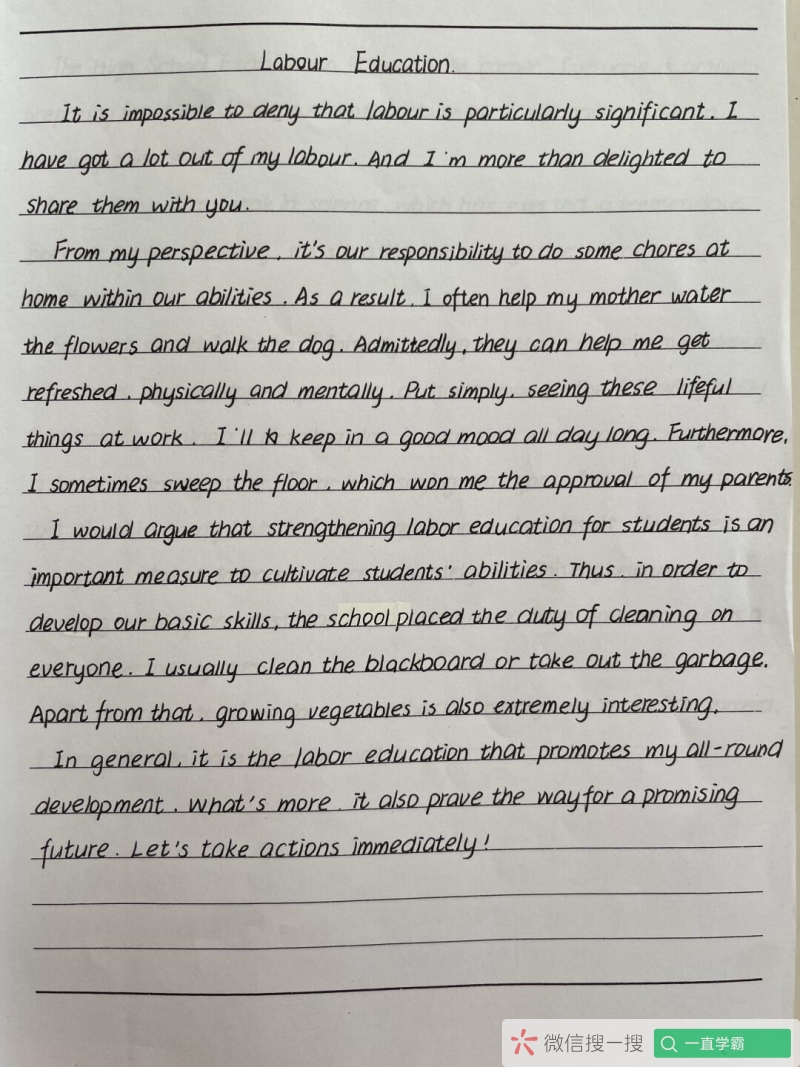 Labour Education.
It is impossible to deny that labour is particularly significant. I
have got a lot out of my labour. And I'm more than delighted to
share them with you.
From my perspective, it's our responsibility to do some chores at
home within our abilities. As a result, I often help my mother water
the flowers and walk the dog. Admittedly, they can help me get
refreshed, physically and mentally. Put simply, seeing these lifeful
things at work, I'll keep in a good mood all day long. Furthermore,
I sometimes sweep the floor, which won me the approval of my parents.
I would argue that strengthening labor education for students is an
important measure to cultivate students' abilities. Thus, in order to
develop our basic skills, the school placed the duty of cleaning on
everyone. I usually clean the blackboard or take out the garbage.
Apart from that, growing vegetables is also extremely interesting.
In general, it is the labor education that promotes my all-round
development. What's more, it also prave the way for a promising
future. Let's take actions immediately!
微信搜一搜
一直学霸